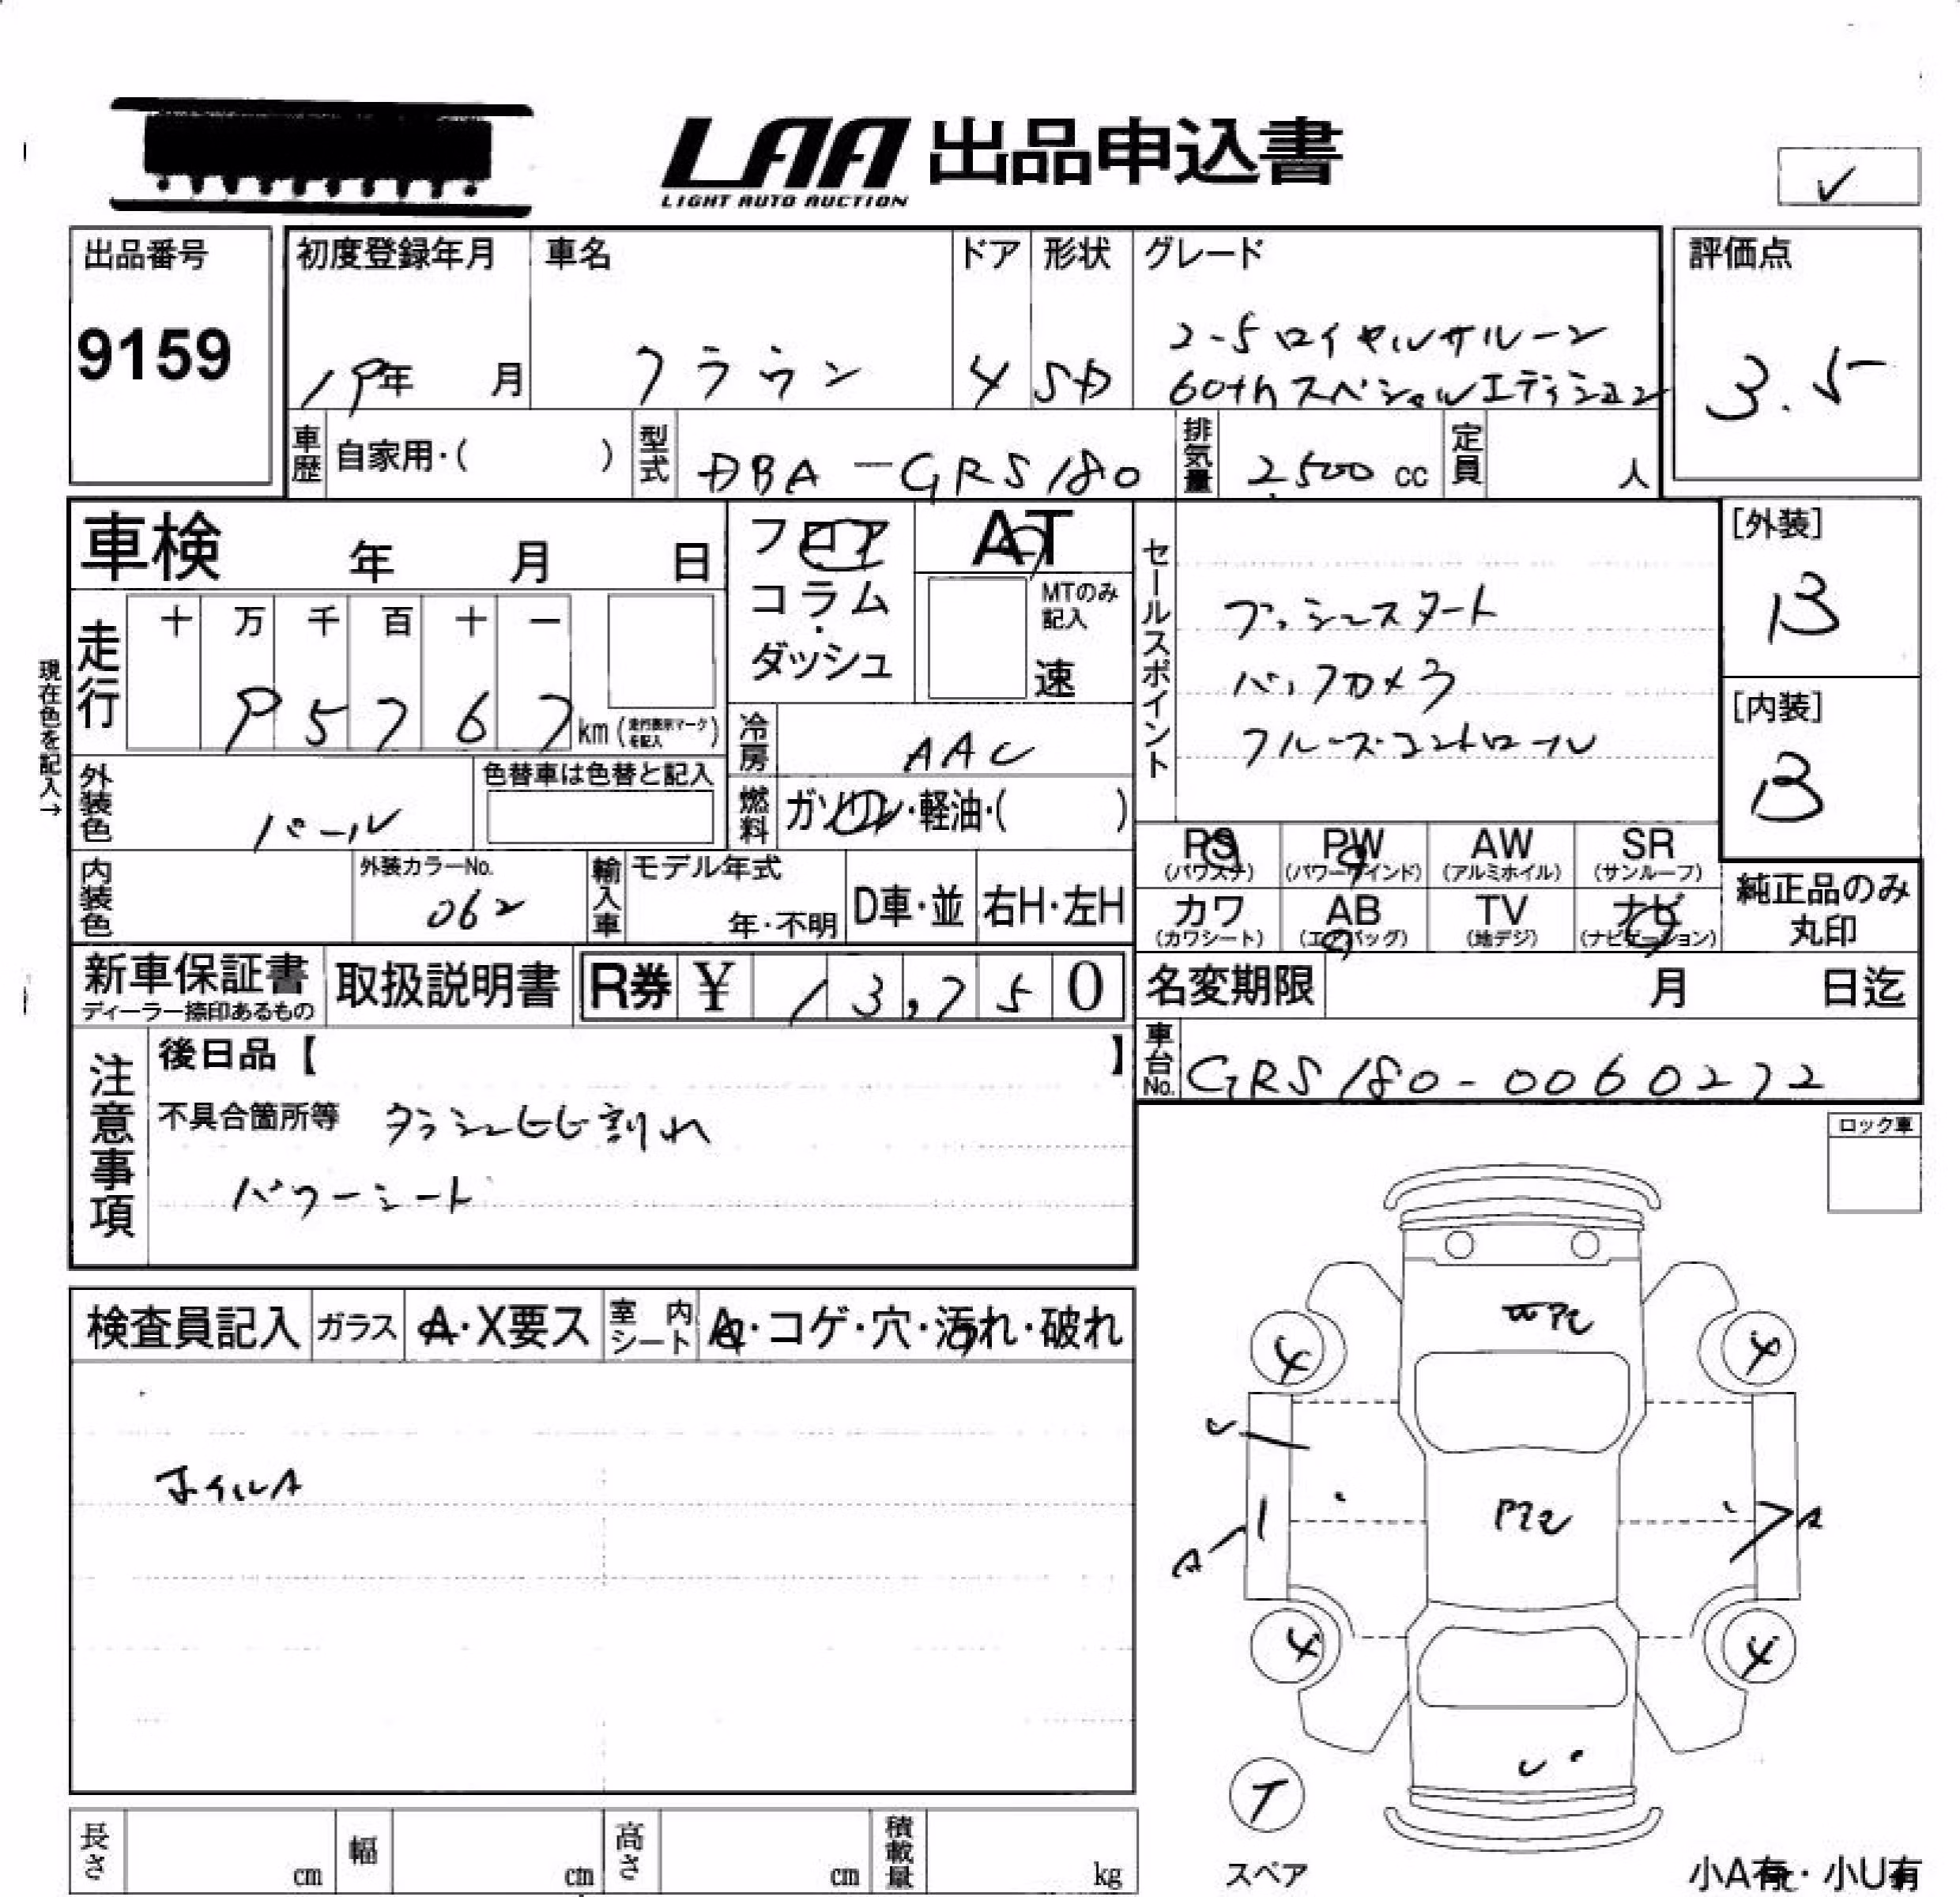 LAA 出品申込書
LIGHT AUTO AUCTION
✓
出品番号
9159
初度登録年月
19年 月
車名
クラウン
ドア
4
形状
SD
グレード
2-5ロイヤルサルーン
60thスペシャルエディション
評価点
3.5
車歴
自家用・( )
型式
DBA-GRS180
排気量
2,500 cc
定員
人
車検 年 月 日
フロア
コラム
・
ダッシュ
AT
MTのみ
記入
速
セールスポイント
プッシュスタート
バックカメラ
クルーズコントロール
[外装]
B
[内装]
B
現在色を記入→
走行
十 万 千 百 十 一
95767
km (走行表示マークを記入)
冷房
AAC
外装色
パール
色替車は色替と記入
燃料
ガソリン・軽油・( )
内装色
外装カラーNo.
062
輸入車
モデル年式
年・不明
D車・並
右H・左H
PS
(パワステ)
PW
(パワーウインド)
AW
(アルミホイル)
SR
(サンルーフ)
カワ
(カワシート)
AB
(エアバッグ)
TV
(地デジ)
ナビ
(ナビゲーション)
純正品のみ
丸印
新車保証書
ディーラー捺印あるもの
取扱説明書
R券 ¥ 13,750
名変期限 月 日迄
車台No.
GRS180-0060272
注意事項
後日品【 】
不具合箇所等 ダッシュヒビ割れ
パワーシート
ロック車
検査員記入
ガラス
A・X要ス
室内シート
A・コゲ・穴・汚れ・破れ
ホイルA
4
4
P2
A
A
4
4
T
スペア
長さ cm
幅 cm
高さ cm
積載量 kg
小A有・小U有